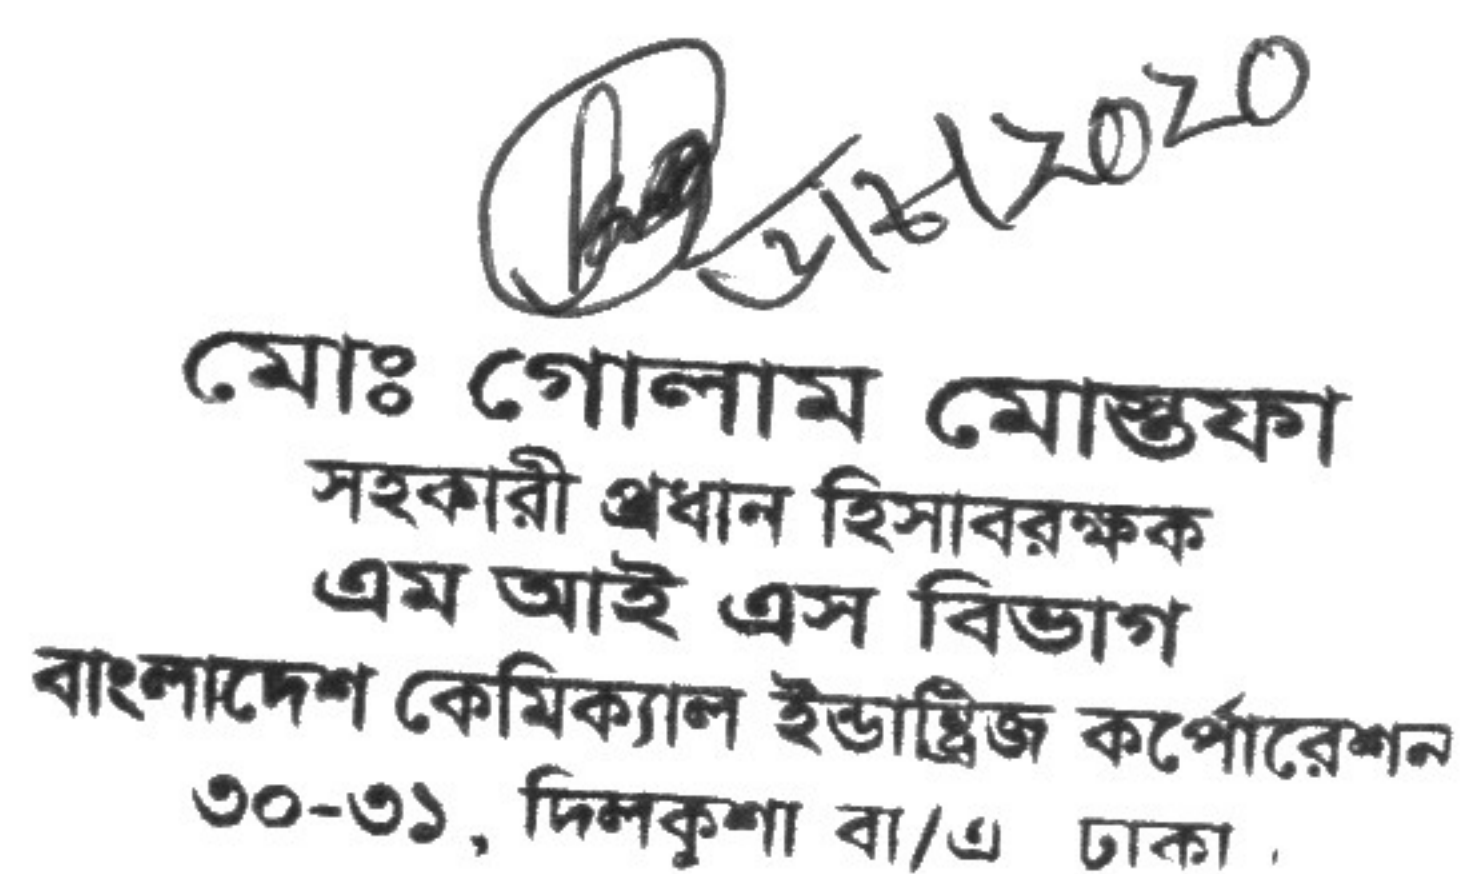 মোঃ গোলাম মোস্তফা
সহকারী প্রধান হিসাবরক্ষক
এম আই এস বিভাগ
বাংলাদেশ কেমিক্যাল ইন্ডাষ্ট্রিজ কর্পোরেশন
৩০-৩১, দিলকুশা বা/এ ঢাকা.